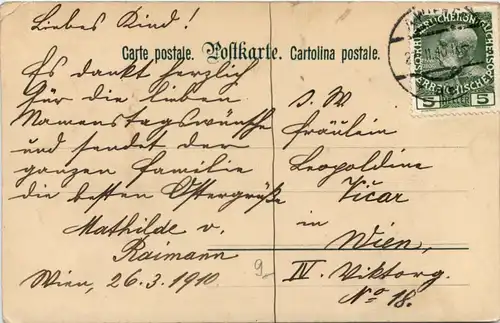 Liebes Kind!
Carte postale. Postkarte. Cartolina postale.
Es dankt herzlich
für die lieben
Namenstagswünsche
und sendet der
ganzen Familie
die besten Ostergrüße
Mathilde v.
Raimann
Wien, 26.3.1910
9.-
S. W.
Fräulein
Leopoldine
Vičar
in
Wien,
IV. Viktorg.
No 18.
5 5